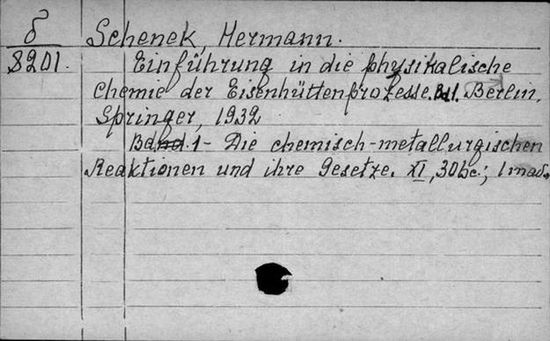 δ Schenek, Hermann.
8201. Einführung in die physikalische
Chemie der Eisenhüttenprozesse. Bd.1. Berlin,
Springer, 1932
Band 1 - Die chemisch-metallurgischen
Reaktionen und ihre Gesetze. XI, 306c.; 1